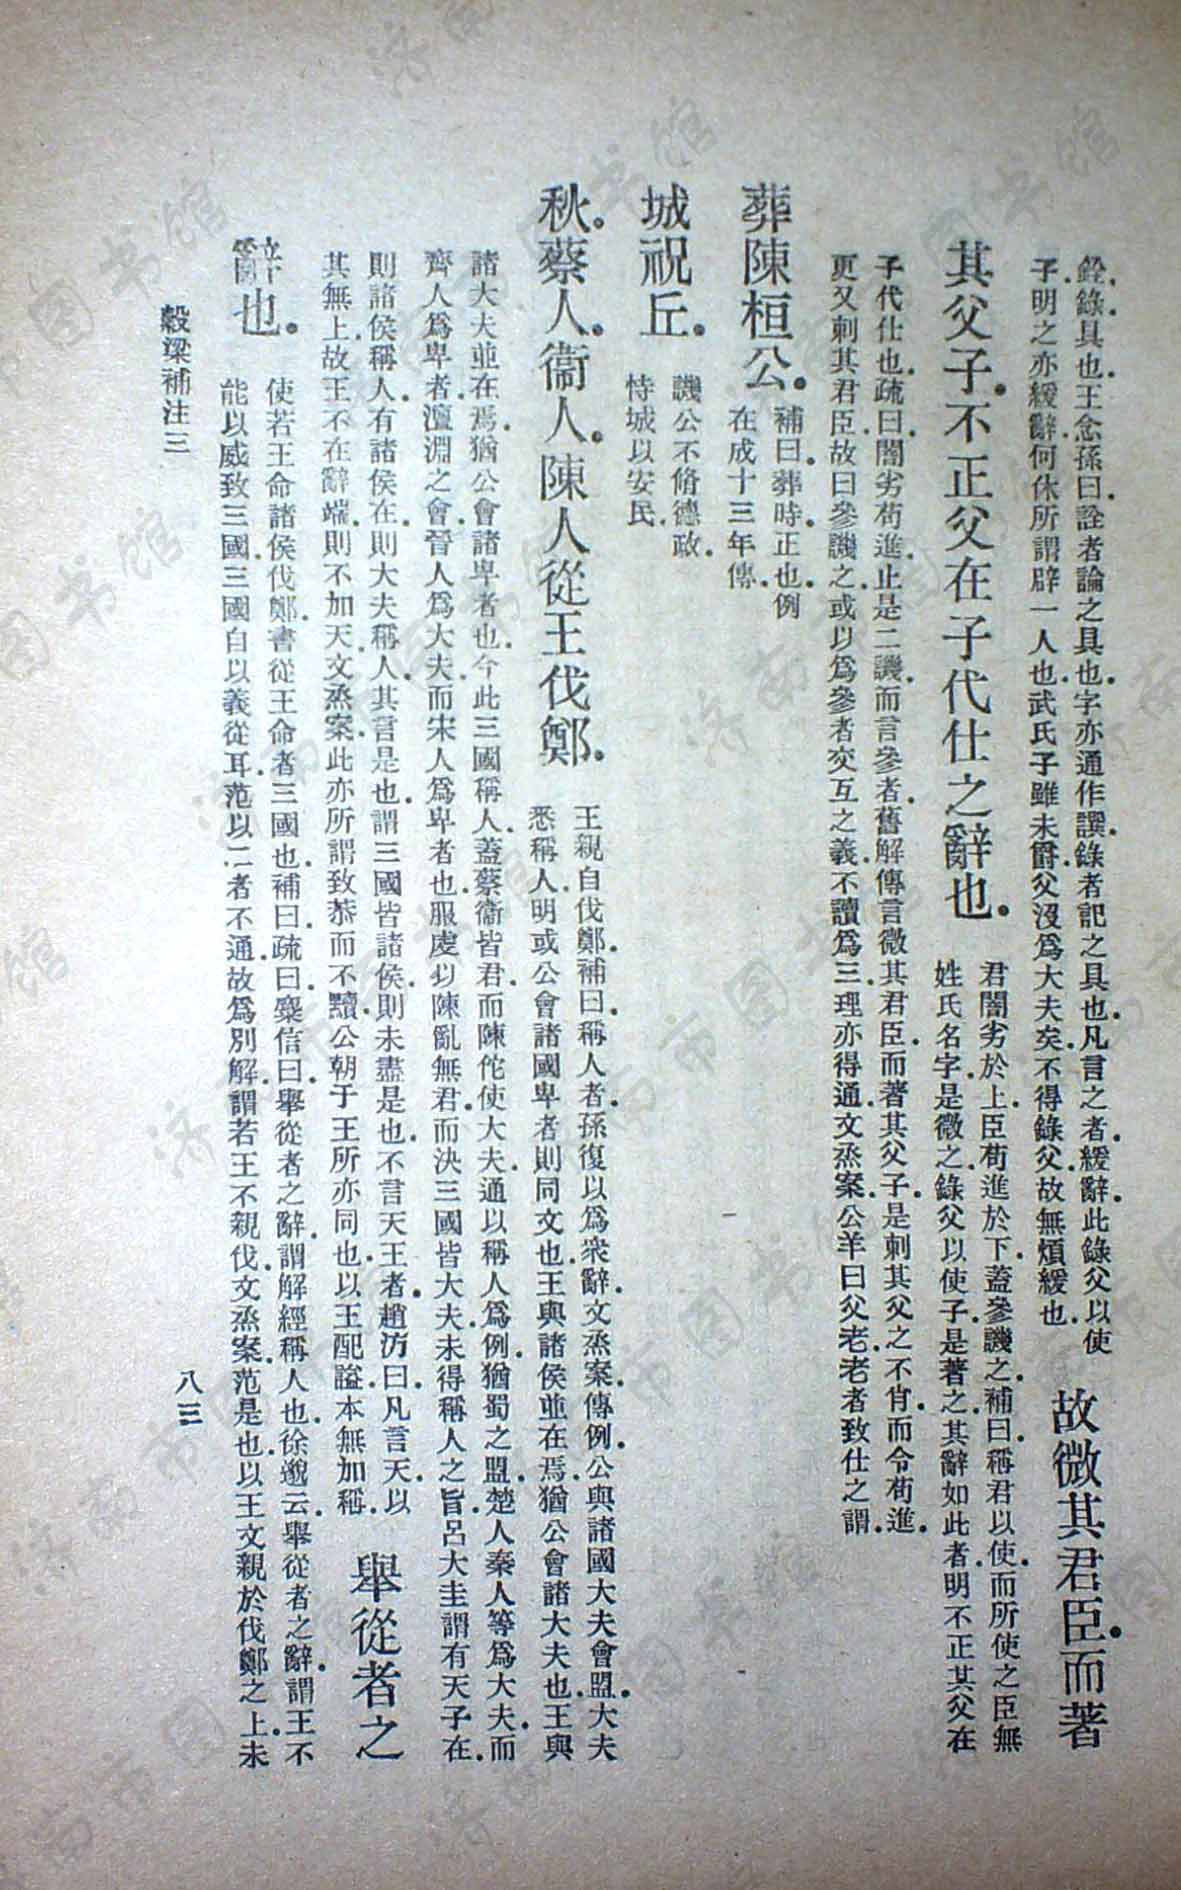 銓錄具也王念孫曰詮者論之具也字亦通作譔錄者記之具也凡言之者緩辭此錄父以使
子明之亦緩辭何休所謂辟一人也武氏子雖未爵父沒爲大夫矣不得錄父故無煩緩也
故微其君臣而著
其父子不正父在子代仕之辭也
君闇劣於上臣苟進於下蓋參譏之補曰稱君以使而所使之臣無
姓氏名字是微之錄父以使子是著之其辭如此者明不正其父在
子代仕也疏曰闇劣苟進止是二譏而言參者舊解傳言微其君臣而著其父子是刺其父之不肖而令苟進
更又刺其君臣故曰參譏之或以爲參者交互之義不讀爲三理亦得通文烝案公羊曰父老老者致仕之謂
葬陳桓公
補曰葬時正也例
在成十三年傳
城祝丘
譏公不脩德政
恃城以安民
秋蔡人衞人陳人從王伐鄭
王親自伐鄭補曰稱人者孫復以爲衆辭文烝案傳例公與諸國大夫會盟大夫
悉稱人明或公會諸國卑者則同文也王與諸侯並在焉猶公會諸大夫也王與
諸大夫並在焉猶公會諸卑者也今此三國稱人蓋蔡衞皆君而陳佗使大夫通以稱人爲例猶蜀之盟楚人秦人等爲大夫而
齊人爲卑者澶淵之會晉人爲大夫而宋人爲卑者也服虔以陳亂無君而決三國皆大夫未得稱人之旨呂大圭謂有天子在
則諸侯稱人有諸侯在則大夫稱人其言是也謂三國皆諸侯則未盡是也不言天王者趙汸曰凡言天以
其無上故王不在辭端則不加天文烝案此亦所謂致恭而不黷公朝于王所亦同也以王配諡本無加稱
舉從者之
辭也
使若王命諸侯伐鄭書從王命者三國也補曰疏曰麋信曰舉從者之辭謂解經稱人也徐邈云舉從者之辭謂王不
能以威致三國三國自以義從耳范以二者不通故爲別解謂若王不親伐文烝案范是也以王文親於伐鄭之上未
穀梁補注三
八三